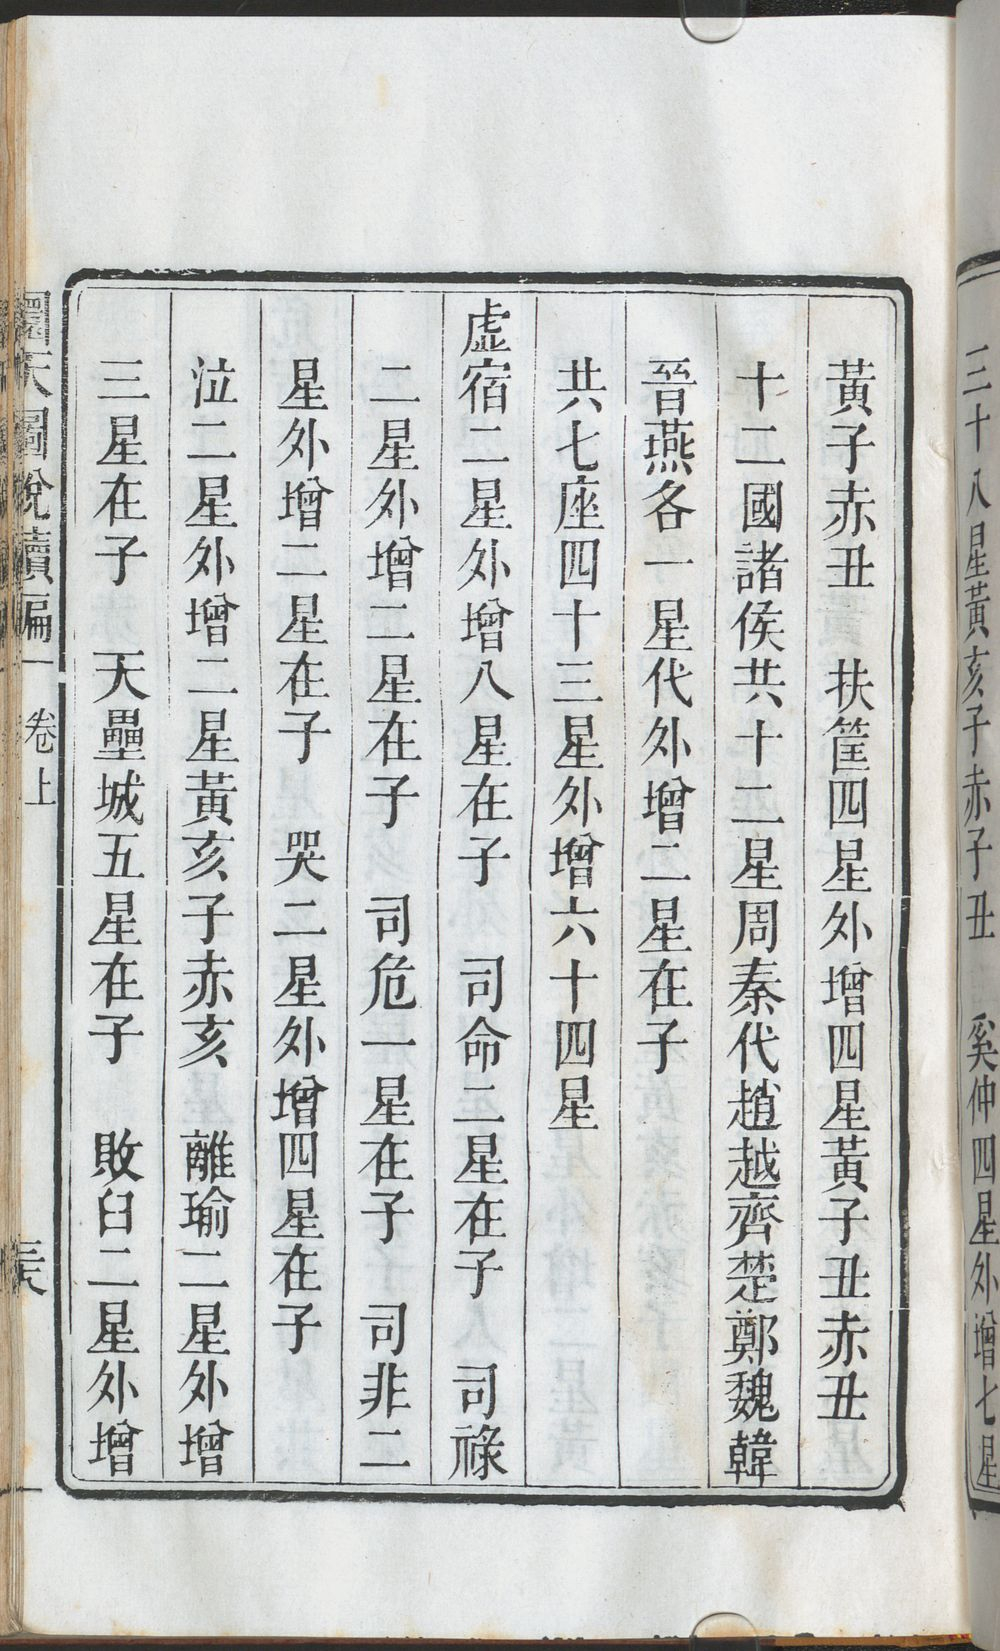 三十八星黃亥子赤子丑　奚仲四星外增七星
黃子赤丑　扶筐四星外增四星黃子丑赤丑
十二國諸侯共十二星周秦代趙越齊楚鄭魏韓
晉燕各一星代外增二星在子
共七座四十三星外增六十四星
虛宿二星外增八星在子　司命二星在子　司祿
二星外增二星在子　司危一星在子　司非二
星外增二星在子　哭二星外增四星在子
泣二星外增二星黃亥子赤亥　離瑜二星外增
三星在子　天壘城五星在子　敗臼二星外增
圜天圖說續編　卷上